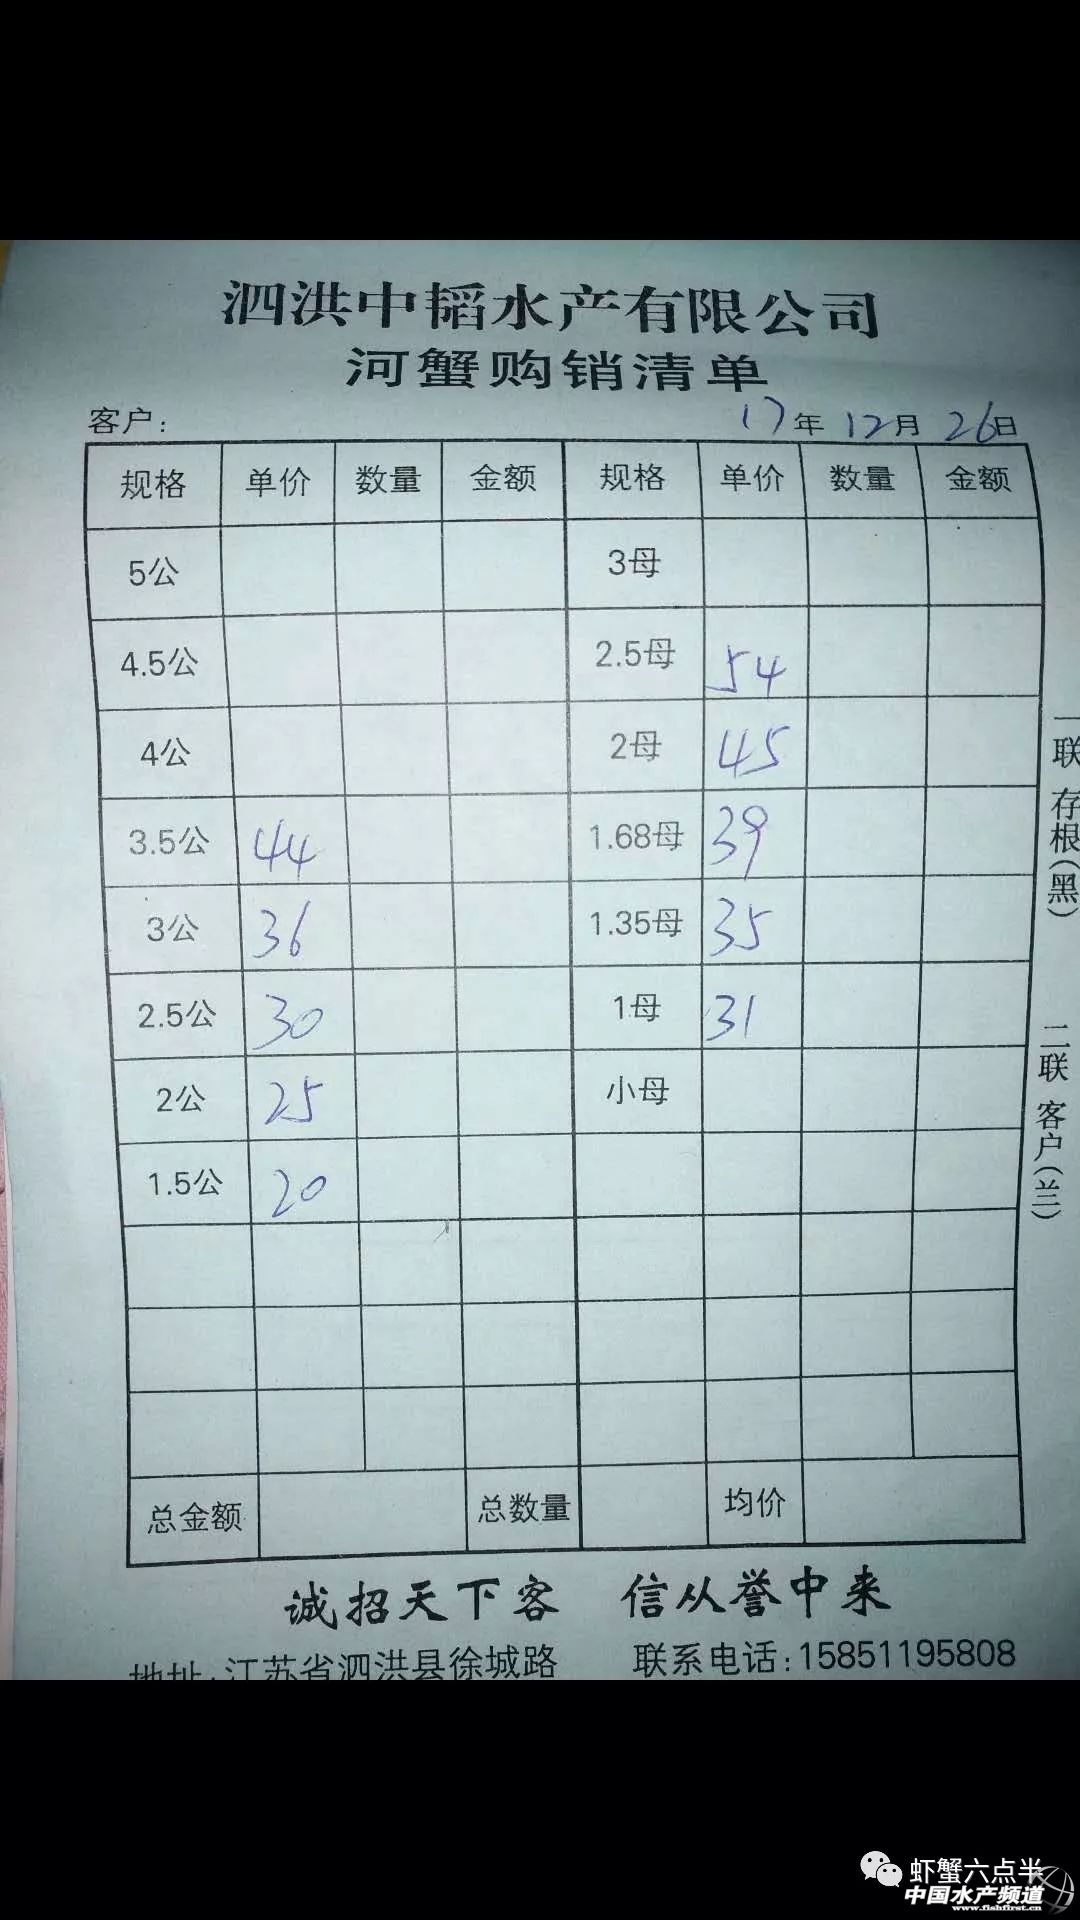 泗洪中韬水产有限公司
河蟹购销清单
客户: 17年 12月 26日
规格 单价 数量 金额 规格 单价 数量 金额
5公 3母
4.5公 2.5母 54
4公 2母 45
3.5公 44 1.68母 39
3公 36 1.35母 35
2.5公 30 1母 31
2公 25 小母
1.5公 20
总金额 总数量 均价
诚招天下客 信从誉中来
地址:江苏省泗洪县徐城路 联系电话:15851195808
一联 存根(黑)
二联 客户(兰)
虾蟹六点半
中国水产频道
www.fishfirst.cn